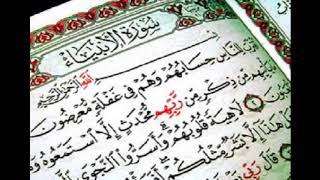 سُورَةُ الْأَنْبِيَاءِ
بِسْمِ اللَّهِ الرَّحْمَٰنِ الرَّحِيمِ
لِلنَّاسِ حِسَابُهُمْ وَهُمْ فِي غَفْلَةٍ مُعْرِضُونَ
مِنْ ذِكْرٍ مِنْ رَبِّهِمْ مُحْدَثٍ إِلَّا اسْتَمَعُوهُ
لَاهِيَةً قُلُوبُهُمْ وَأَسَرُّوا النَّجْوَى
هَٰذَا إِلَّا بَشَرٌ مِثْلُكُمْ
قَالَ رَبِّي